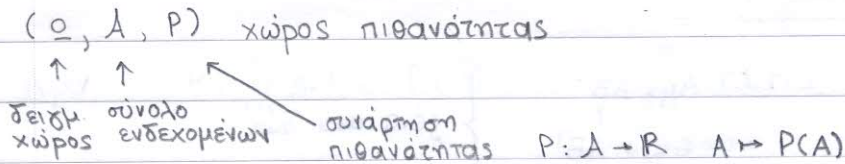 (Ω, A, P) χώρος πιθανότητας
↑ ↑
δειγμ σύνολο
χώρος ενδεχομένων
συνάρτηση
πιθανότητας P: A → ℝ A ↦ P(A)